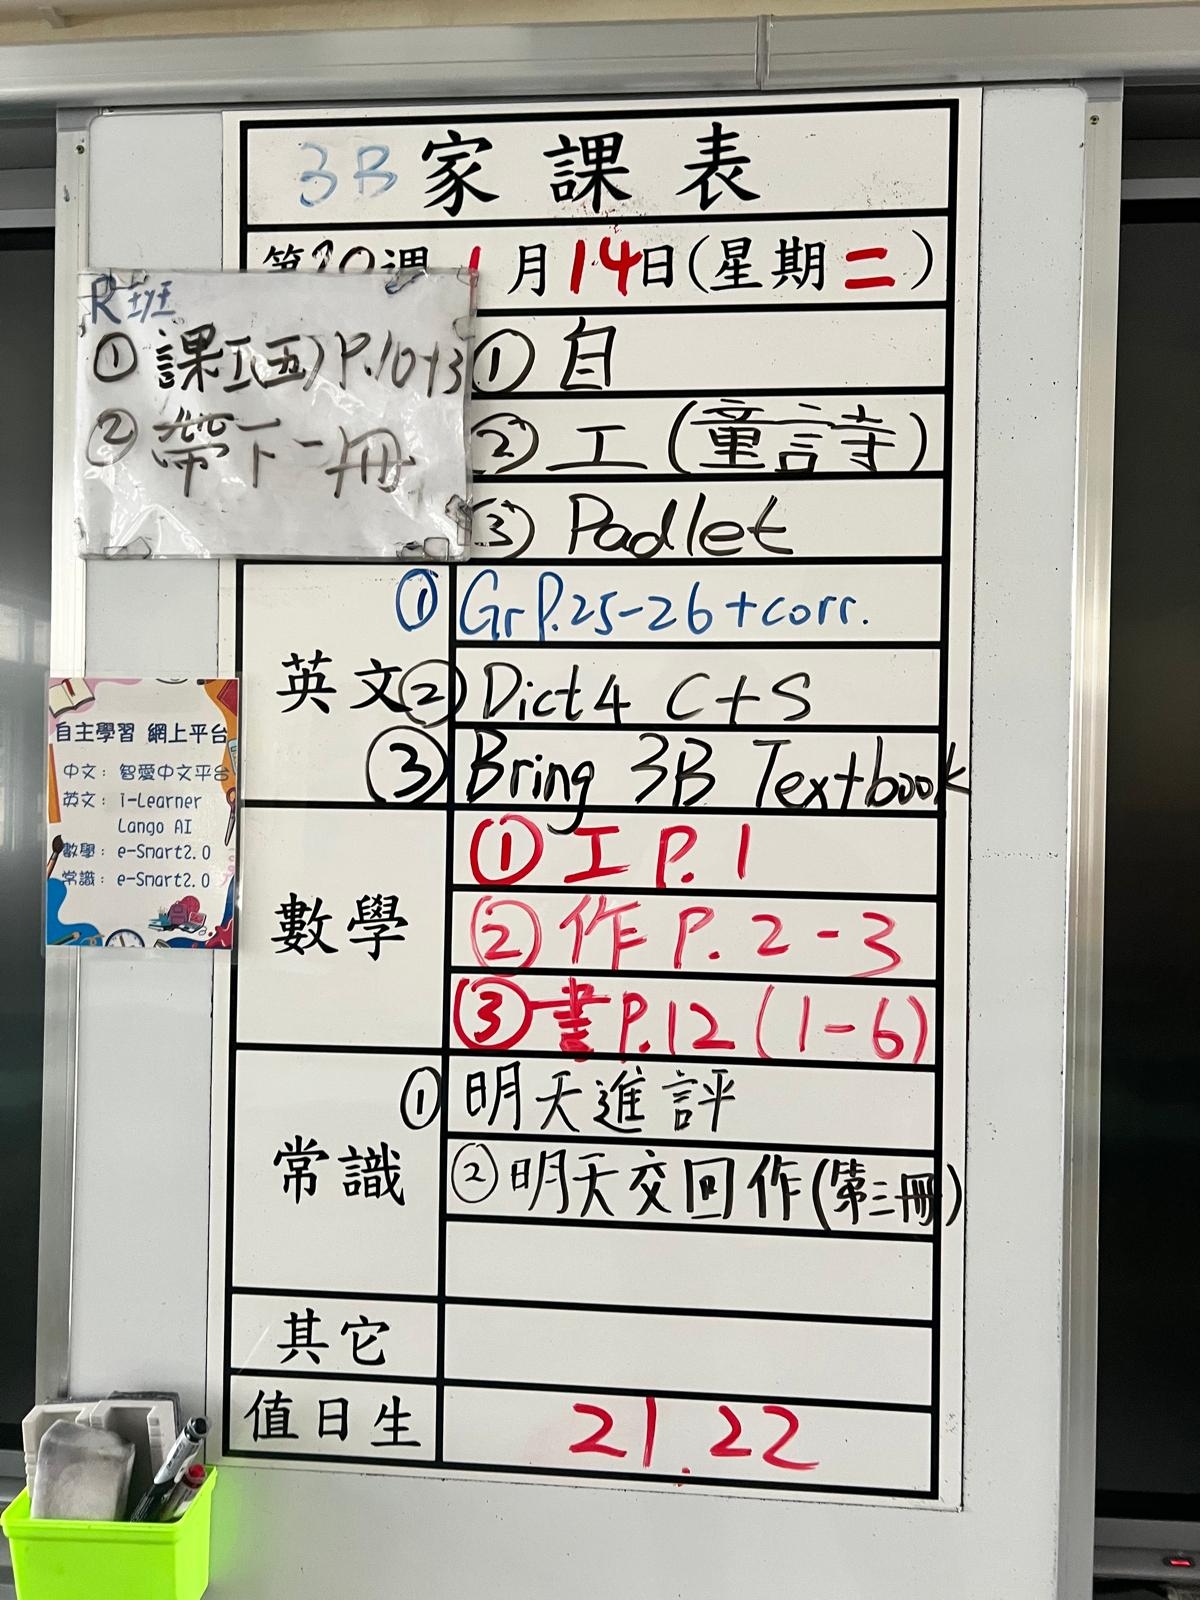 3B 家課表
第20週 1月14日(星期二)
R班
① 課工(五)P.10+13
② 帶下一冊
① 自
② 工(童言詩)
③ Padlet
英文
① Gr P.25-26+corr.
② Dict 4 C+S
③ Bring 3B Textbook
自主學習 網上平台
中文: 智愛中文平台
英文: i-Learner
Lango AI
數學: e-Smart2.0
常識: e-Smart2.0
數學
① 工 P.1
② 作 P.2-3
③ 書 P.12 (1-6)
常識
① 明天進評
② 明天交回作(第三冊)
其它
值日生
21.22